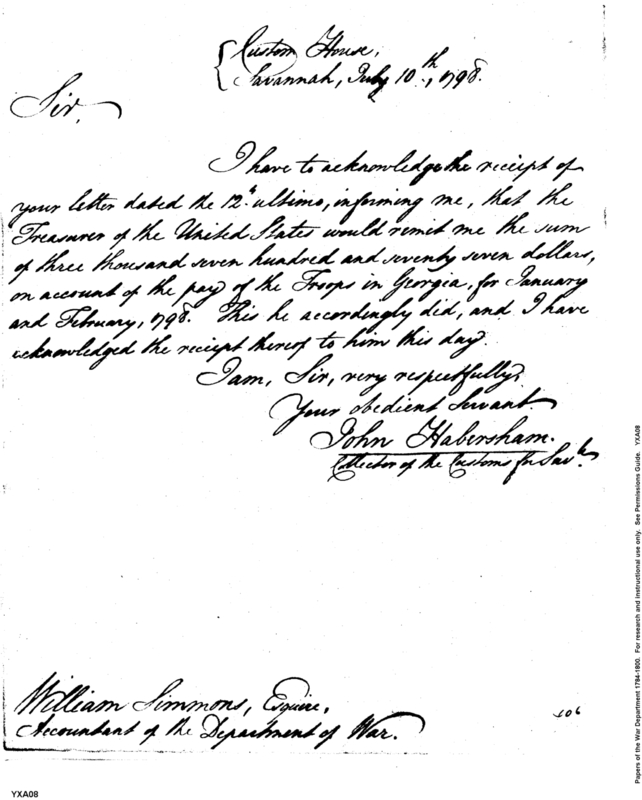 Custom House,
Savannah, July 10th, 1798.
Sir,
I have to acknowledge the receipt of
your letter dated the 12th ultimo, informing me, that the
Treasurer of the United States would remit me the sum
of three thousand seven hundred and seventy seven dollars,
on account of the pay of the Troops in Georgia, for January
and February, 1798. This he accordingly did, and I have
acknowledged the receipt thereof to him this day.
I am, Sir, very respectfully,
Your obedient Servant
John Habersham.
Collector of the Customs for Savh
William Simmons, Esquire,
Accountant of the Department of War.
YXA08
Papers of the War Department 1784-1800. For research and instructional use only. See Permissions Guide. YXA08